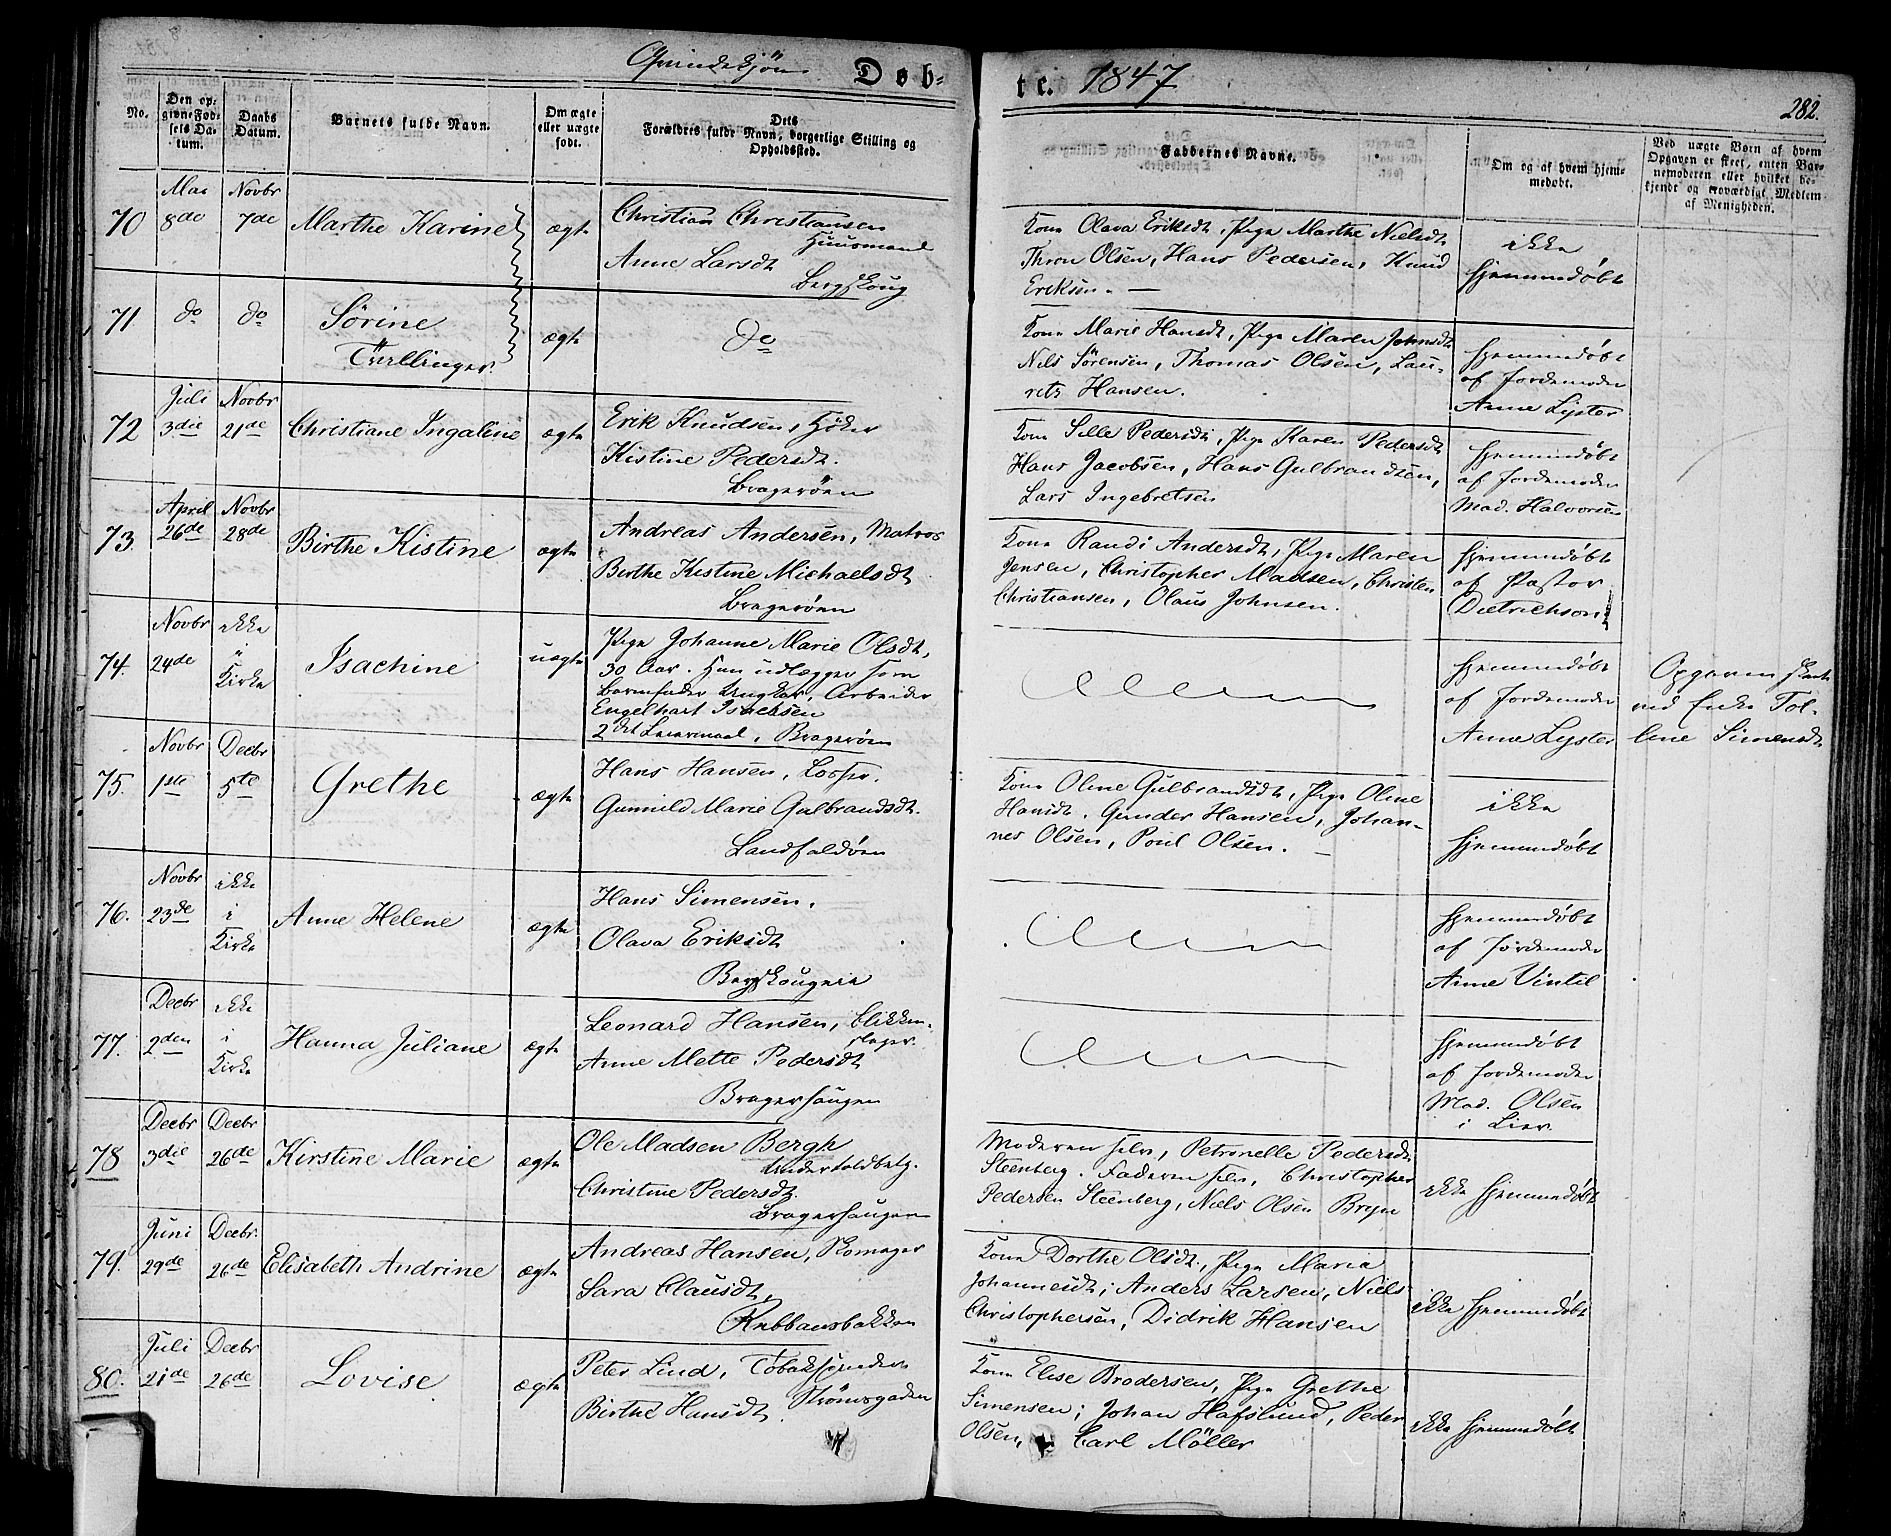 Qvindekjön Døb-
te. 1847
282.
No.
Den op-
givne Fød-
sels Da-
tum.
Daabs
Datum.
Barnets fulde Navn.
Om ægte
eller uægte
født.
Dets
Forældres fulde Navn, borgerlige Stilling og
Opholdssted.
Faddernes Navne.
Om og af hvem hjem-
medøbt.
Ved uægte Børn af hvem
Opgaven er skeet, enten Bar-
nemoderen eller hvilket be-
kjendt og troværdigt Medlem
af Menigheden.
70 Mai 8de Novbr 7de Marthe Karine ægte
Christian Christiansen
Huusmand
Anne Larsdt
Bergskoug
Kone Olava Eriksdt, Pige Marthe Nielsdt
Thron Olsen, Hans Pedersen, Knud
Eriksen.
ikke
hjemmedøbt
71 do do Sörine
Tvillinger.
ægte
do
Kone Marie Hansdt, Pige Maren Johnsdt
Nils Sörensen, Thomas Olsen, Lau-
ritz Hansen.
hjemmedøbt
af Jordemoder
Anne Lyster
72 Juli 3die Novbr 21de Christiane Ingaline ægte
Erik Knudsen, Høker
Kistine Pedersdt.
Bragerøen
Kone Sille Pedersdt, Pige Karen Pedersdt
Hans Jacobsen, Hans Gulbrandsen,
Lars Ingebretsen
hjemmedøbt
af Jordemoder
Mad. Halvorsen
73. April 26de Novbr 28de Birthe Kistine ægte
Andreas Andersen, Matros
Birthe Kistine Michaelsdt
Bragerøen
Kone Randi Andersdt, Pige Maren
Jensen, Christopher Madsen, Christen
Christiansen, Olaus Johnsen.
hjemmedøbt
af Pastor
Dietrichson
74. Novbr 24de ikke i Kirke Isachine uægte
Pige Johanne Marie Olsdt,
30 Aar. Hun udlægger som
Barnefader Ungkar, Arbeider
Engelhart Isachsen
2det Leiermaal, Bragerøen
hjemmedøbt
af Jordemoder
Anne Lyster
Opgaven skeet
ved Enke Tol-
line Simensdt
75. Novbr 1ste Decbr 5te Grethe ægte
Hans Hansen, Lodser.
Gunnild Marie Gulbrandsdt.
Landfaldøen
Kone Oline Gulbrandsdt, Pige Oline
Hansdt. Gunder Hansen, Johan-
nes Olsen, Poul Olsen.
ikke
hjemmedøbt
76. Novbr 23de ikke i Kirke Anne Helene ægte
Hans Simensen.
Olava Eriksdt
Bergskougeie
hjemmedøbt
af Jordemoder
Anne Vintil
77. Decbr 2den ikke i Kirke Hanna Juliane ægte
Leonard Hansen, Blikken-
slager.
Anne Mette Pedersdt
Bragerhaugen
hjemmedøbt
af Jordemoder
Mad. Olsen
i Lier.
78 Decbr 3die Decbr 26de Kirstine Marie ægte
Ole Madsen Bergh
Undertoldbetj.
Christine Pedersdt.
Bragerhaugen
Moderen selv, Petronelle Pedersdt
Steenberg. Faderen selv, Christopher
Pedersen Steenberg, Niels Olsen Bryn
ikke hjemmedøbt
79. Juni 29de Decbr. 26de Elisabeth Andrine ægte
Andreas Hansen, Skomager
Sara Clausdt,
Kone Dorthe Olsdt., Pige Maria
Johannesdt; Anders Larsen, Niels
Christophersen, Didrik Hansen
ikke hjemmedøbt
80. Juli 21de Decbr 26de Lovise ægte
Peter Lind, Tobakspinder
Birthe Hansdt. Strömsgaden
Kone Elise Brodersen, Pige Grethe
Simensen; Johan Hafslund, Peder
Olsen, Carl Möller
ikke hjemmedøbt